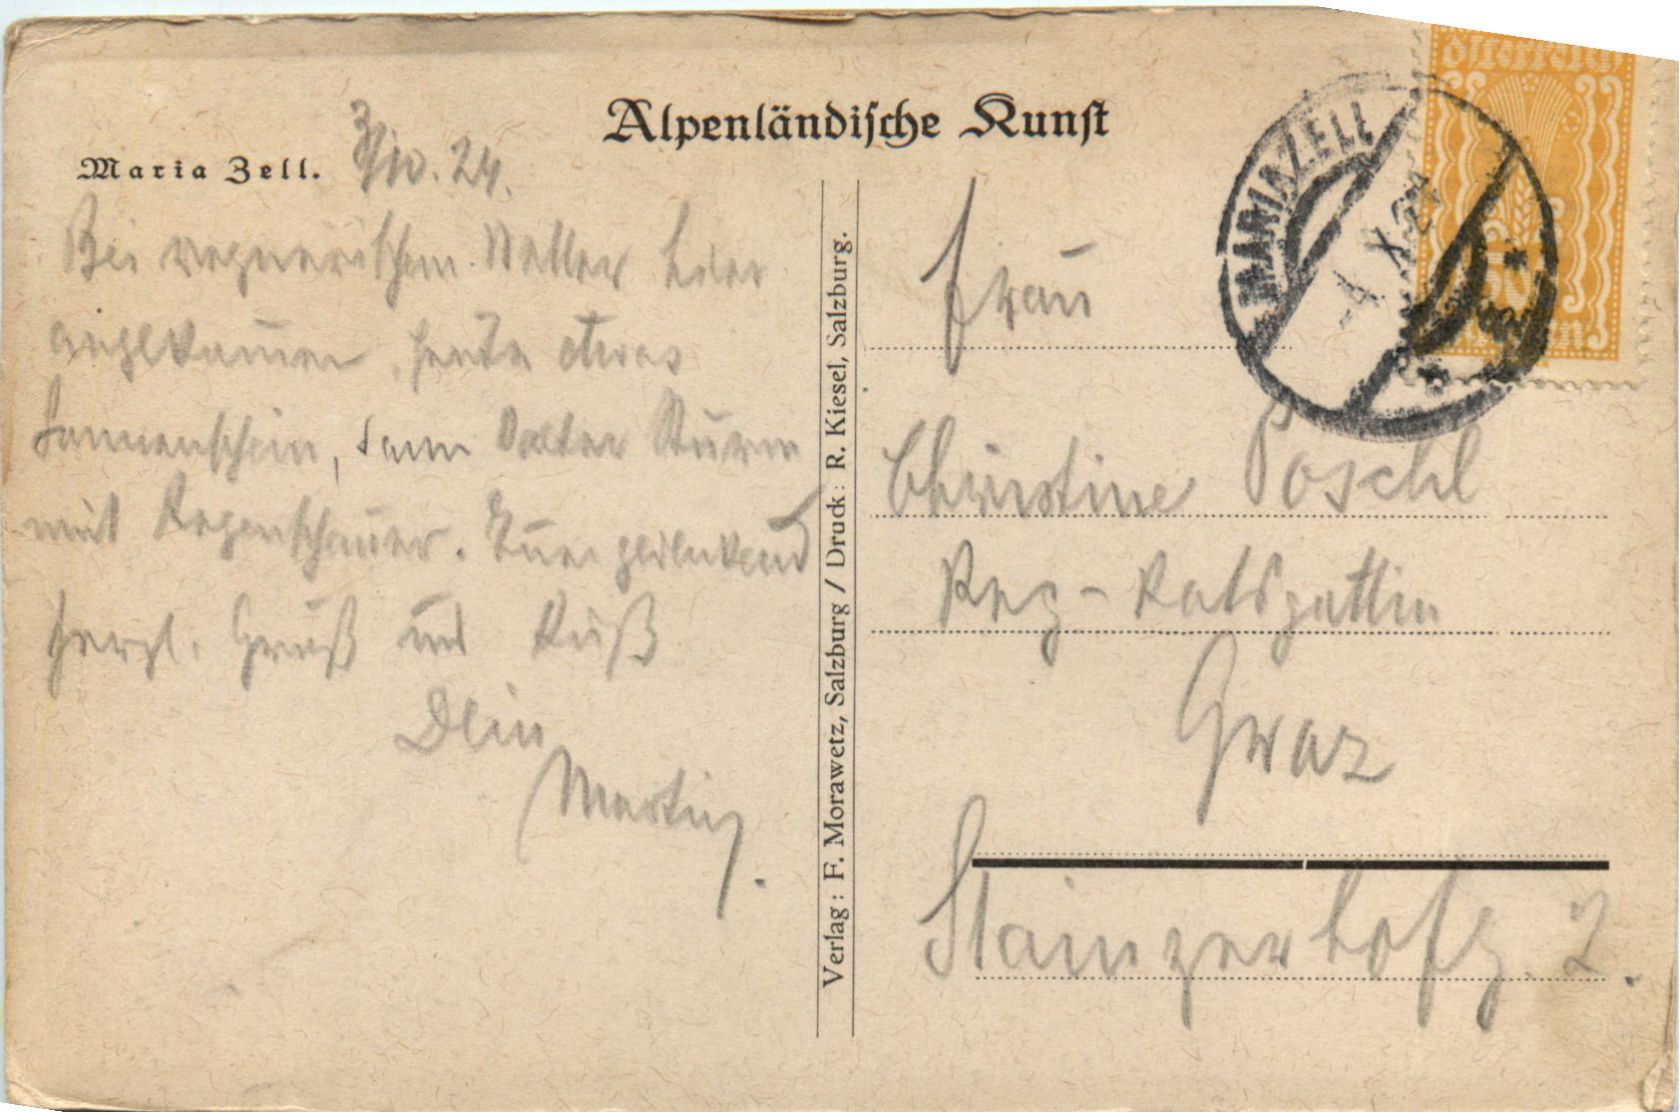 Alpenländische Kunst
Maria Zell. 3/10. 24.
Bei regnerischem Wetter hier
angekommen, heute etwas
Sonnenschein, dann kalter Sturm
mit Regenschauer.
herzl. Gruß und Kuß
Dein
Martin.
Verlag: F. Morawetz, Salzburg / Druck: R. Kiesel, Salzburg.
Österreich
MARIAZELL
4. X. 24
Frau
Christine Poschl
Reg-Ratsgattin
Graz
Stainzerhofg. 2.